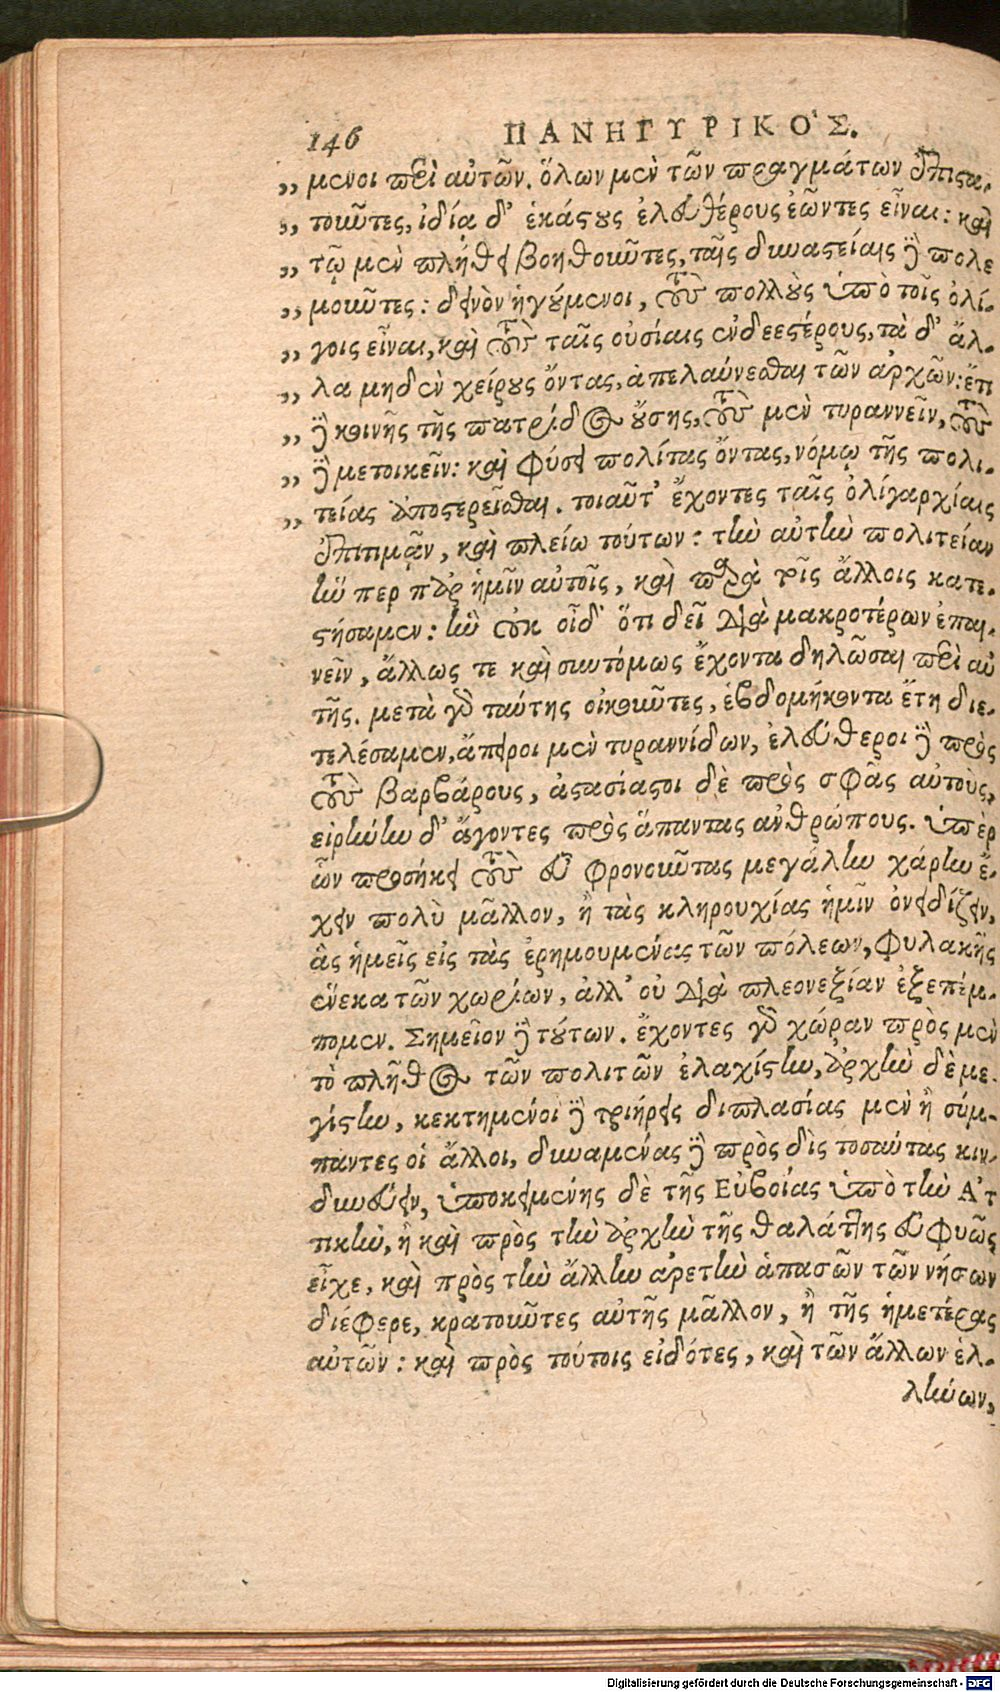 146 ΠΑΝΗΓΥΡΙΚΟ'Σ.
„ μενοι περὶ αὐτῶν. ὅλων μὲν τῶν πραγμάτων ἐπιστα-
„ τοῦντες, ἰδίᾳ δ' ἑκάστους ἐλευθέρους ἐῶντες εἶναι: καὶ
„ τῷ μὲν πλήθει βοηθοῦντες, ταῖς δυναστείαις δὲ πολε
„ μοῦντες: δεινὸν ἡγούμενοι, τοὺς πολλοὺς ὑπὸ τοῖς ὀλί-
„ γοις εἶναι, καὶ τοὺς ταῖς οὐσίαις ἐνδεεστέρους, τὰ δ' ἄλ-
„ λα μηδὲν χείρους ὄντας, ἀπελαύνεσθαι τῶν ἀρχῶν: ἔτι
„ δὲ κοινῆς τῆς πατρίδος οὔσης, τοὺς μὲν τυραννεῖν, τοὺς
„ δὲ μετοικεῖν: καὶ φύσει πολίτας ὄντας, νόμῳ τῆς πολι-
„ τείας ἀποστερεῖσθαι. τοιαῦτ' ἔχοντες ταῖς ὀλιγαρχίαις
ἐπιτιμᾷν, καὶ πλείω τούτων: τὴν αὐτὴν πολιτείαν
ἥν περ παρ' ἡμῖν αὐτοῖς, καὶ παρὰ τοῖς ἄλλοις κατε-
στήσαμεν: ἣν οὐκ οἶδ' ὅτι δεῖ διὰ μακροτέρων ἐπαι-
νεῖν, ἄλλως τε καὶ συντόμως ἔχοντα δηλῶσαι περὶ αὐ
τῆς. μετὰ γὰρ ταύτης οἰκοῦντες, ἑβδομήκοντα ἔτη διε-
τελέσαμεν, ἄπειροι μὲν τυραννίδων, ἐλεύθεροι δὲ πρὸς
τοὺς βαρβάρους, ἀστασίαστοι δὲ πρὸς σφᾶς αὐτοὺς,
εἰρήνην δ' ἄγοντες πρὸς ἅπαντας ἀνθρώπους. ὑπὲρ
ὧν προσήκει τοὺς εὖ φρονοῦντας μεγάλην χάριν ἔ-
χειν πολὺ μᾶλλον, ἢ τὰς κληρουχίας ἡμῖν ὀνειδίζειν,
ἃς ἡμεῖς εἰς τὰς ἐρημουμένας τῶν πόλεων, φυλακῆς
ἕνεκα τῶν χωρίων, ἀλλ' οὐ διὰ πλεονεξίαν ἐξεπέμ-
πομεν. Σημεῖον δὲ τούτων. ἔχοντες γὰρ χώραν πρὸς μὲν
τὸ πλῆθος τῶν πολιτῶν ἐλαχίστην, ἀρχὴν δὲ με-
γίστην, κεκτημένοι δὲ τριήρεις διπλασίας μὲν ἢ σύμ-
παντες οἱ ἄλλοι, δυναμένας δὲ πρὸς δὶς τοσαύτας κιν-
δυνεύειν, ὑποκειμένης δὲ τῆς Εὐβοίας ὑπὸ τὴν Ἀτ
τικὴν, ἣ καὶ πρὸς τὴν ἀρχὴν τῆς θαλάττης εὐφυῶς
εἶχε, καὶ πρὸς τὴν ἄλλην ἀρετὴν ἁπασῶν τῶν νήσων
διέφερε, κρατοῦντες αὐτῆς μᾶλλον, ἢ τῆς ἡμετέρας
αὐτῶν: καὶ πρὸς τούτοις εἰδότες, καὶ τῶν ἄλλων ἑλ-
λήνων,
Digitalisierung gefördert durch die Deutsche Forschungsgemeinschaft - DFG